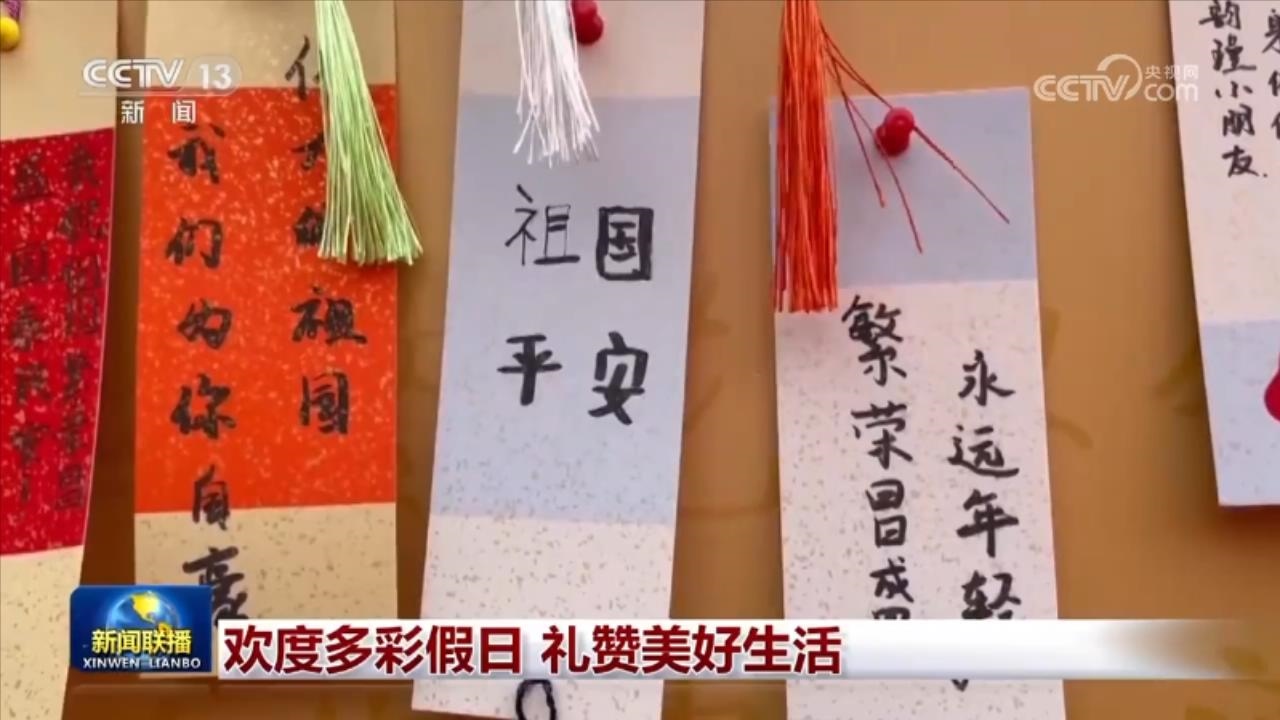 CCTV 13
新闻
央视网
CCTV com
国泰民安！
祖国
我们为你自豪
祖国
平安
永远年轻
繁荣昌盛
小朋友.
新闻联播
XINWEN LIANBO
欢度多彩假日 礼赞美好生活